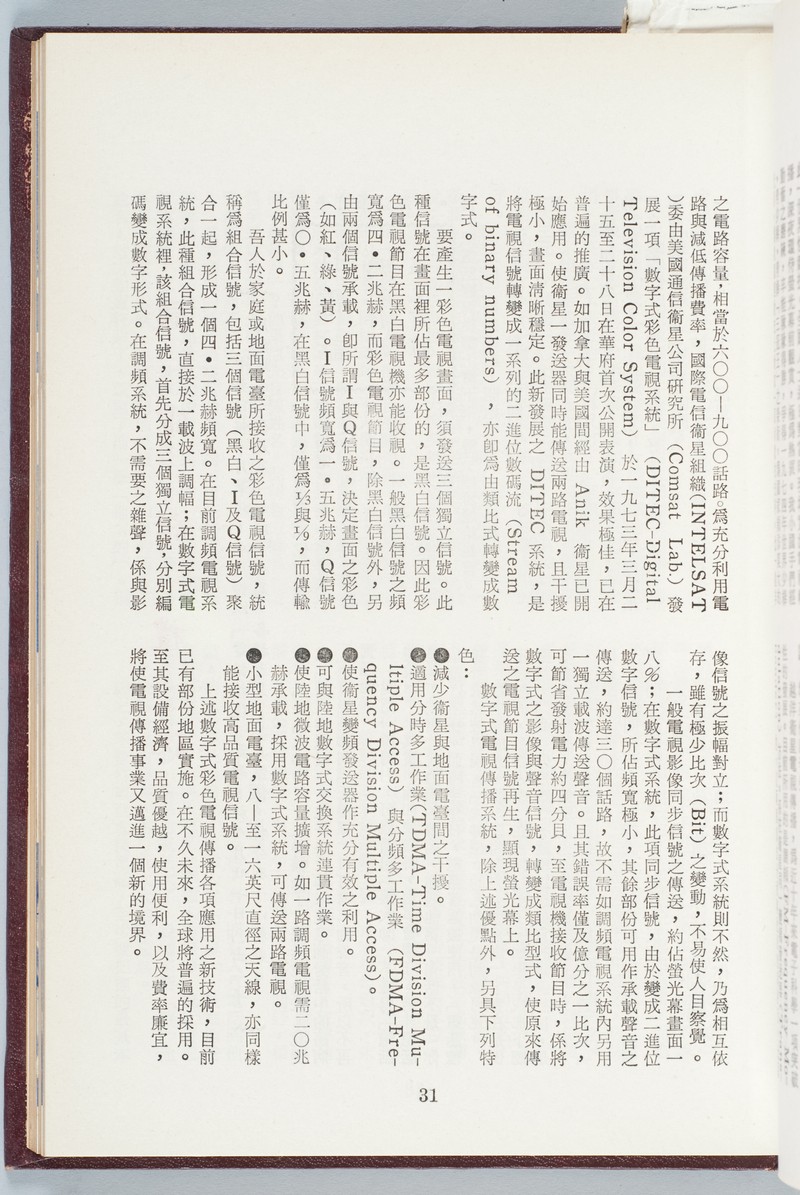 之電路容量，相當於六〇〇—九〇〇話路。為充分利用電
路與減低傳播費率，國際電信衞星組織(INTELSAT
)委由美國通信衞星公司研究所 (Comsat Lab.) 發
展一項「數字式彩色電視系統」 (DITEC-Digital
Television Color System) 於一九七三年三月二
十五至二十八日在華府首次公開表演，效果極佳，已在
普遍的推廣。如加拿大與美國間經由 Anik 衞星已開
始應用。使衞星一發送器同時能傳送兩路電視，且干擾
極小，畫面清晰穩定。此新發展之 DITEC 系統，是
將電視信號轉變成一系列的二進位數碼流 (Stream
of binary numbers) ，亦卽為由類比式轉變成數
字式。
要產生一彩色電視畫面，須發送三個獨立信號。此
種信號在畫面裡所佔最多部份的，是黑白信號。因此彩
色電視節目在黑白電視機亦能收視。一般黑白信號之頻
寬爲四•二兆赫，而彩色電視節目，除黑白信號外，另
由兩個信號承載，卽所謂I與Q信號，決定畫面之彩色
（如紅、綠、黃）。I信號頻寬爲一•五兆赫，Q信號
僅爲〇•五兆赫，在黑白信號中，僅爲⅓與⅑，而傳輸
比例甚小。
吾人於家庭或地面電臺所接收之彩色電視信號，統
稱爲組合信號，包括三個信號（黑白、I及Q信號）聚
合一起，形成一個四•二兆赫頻寬。在目前調頻電視系
統，此種組合信號，直接於一載波上調幅；在數字式電
視系統裡，該組合信號，首先分成三個獨立信號，分別編
碼變成數字形式。在調頻系統，不需要之雜聲，係與影
像信號之振幅對立；而數字式系統則不然，乃爲相互依
存，雖有極少比次 (Bit) 之變動，不易使人目察覺。
一般電視影像同步信號之傳送，約佔螢光幕畫面一
八％；在數字式系統，此項同步信號，由於變成二進位
數字信號，所佔頻寬極小，其餘部份可用作承載聲音之
傳送，約達三〇個話路，故不需如調頻電視系統內另用
一獨立載波傳送聲音。且其錯誤率僅及億分之一比次，
可節省發射電力約四分貝，至電視機接收節目時，係將
數字式之影像與聲音信號，轉變成類比型式，使原來傳
送之電視節目信號再生，顯現螢光幕上。
數字式電視傳播系統，除上述優點外，另具下列特
色：
●減少衞星與地面電臺間之干擾。
●適用分時多工作業(TDMA-Time Division Mu-
ltiple Access) 與分頻多工作業 (FDMA-Fre-
quency Division Multiple Access)。
●使衞星變頻發送器作充分有效之利用。
●可與陸地數字式交換系統連貫作業。
●使陸地微波電路容量擴增。如一路調頻電視需二〇兆
赫承載，採用數字式系統，可傳送兩路電視。
●小型地面電臺，八—至一六英尺直徑之天線，亦同樣
能接收高品質電視信號。
上述數字式彩色電視傳播各項應用之新技術，目前
已有部份地區實施。在不久未來，全球將普遍的採用。
至其設備經濟，品質優越，使用便利，以及費率廉宜，
將使電視傳播事業又邁進一個新的境界。
31